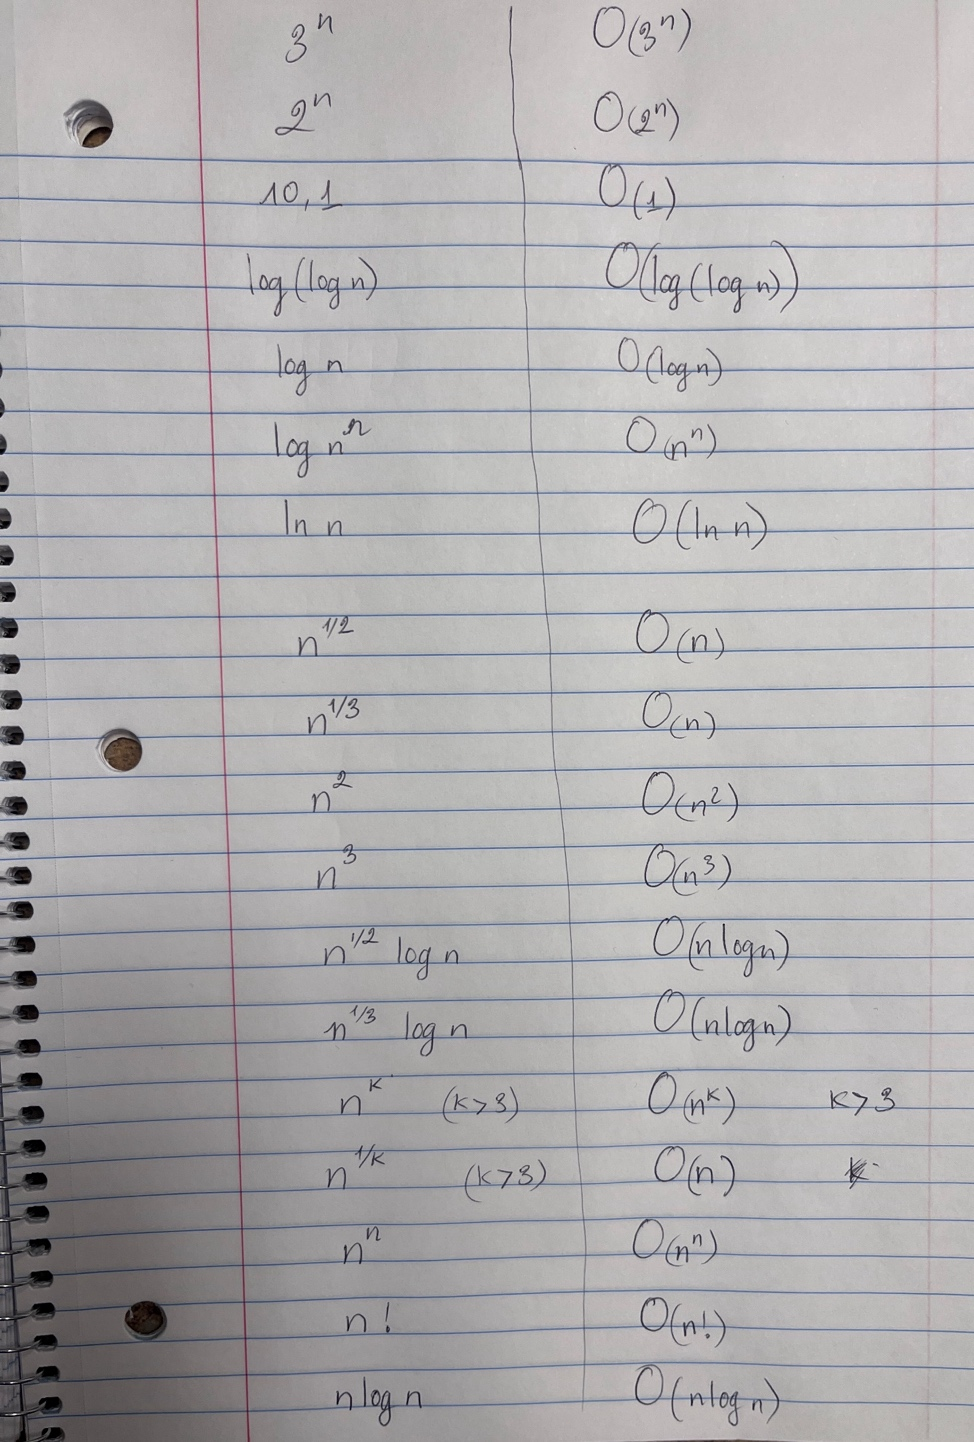 3ⁿ O(3ⁿ)
2ⁿ O(2ⁿ)
10, 1 O(1)
log(log n) O(log(log n))
log n O(log n)
log nⁿ O(nⁿ)
ln n O(ln n)
n^1/2 O(n)
n^1/3 O(n)
n² O(n²)
n³ O(n³)
n^1/2 log n O(n log n)
n^1/3 log n O(n log n)
n^k (k>3) O(n^k) k>3
n^1/k (k>3) O(n)
nⁿ O(nⁿ)
n! O(n!)
n log n O(n log n)